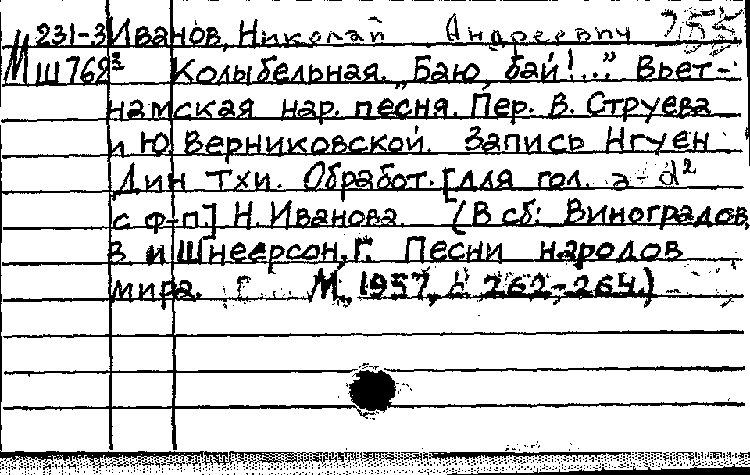 231-3 Иванов, Николай Андреевич
М Ш762³ Колыбельная. „Баю, бай!..." Вьет-
намская нар. песня. Пер. В. Струева
и Ю. Верниковской. Запись Нгуен
Дин Тхи. Обработ. [для гол. a - d²
с ф-п.] Н. Иванова. (В сб: Виноградов,
В. и Шнеерсон, Г. Песни народов
мира. М., 1957, с. 262-264.)